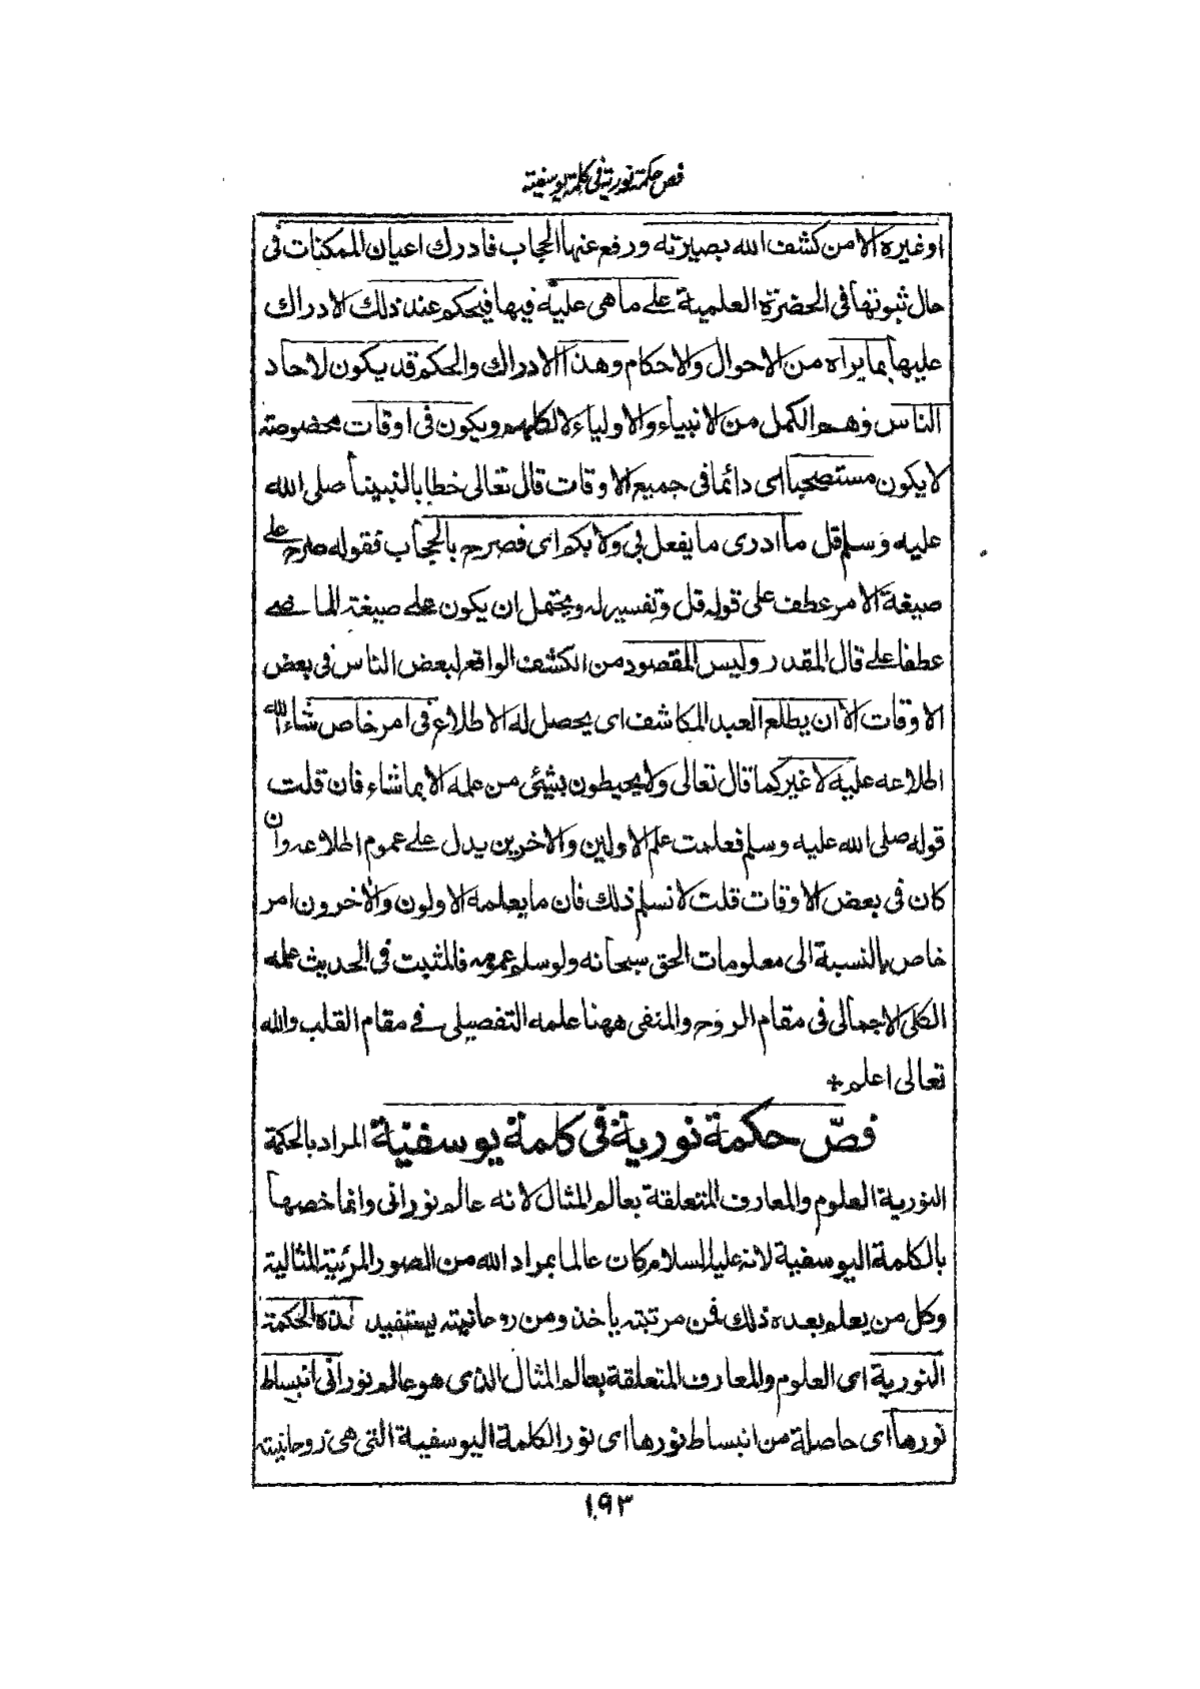 فص حكمة نورية فى كلمة يوسفية
او غيره الا من كشف الله بصيرته ورفع عنها الحجاب فادرك اعيان الممكنات فى
حال ثبوتها فى الحضرة العلمية على ما هى عليه فيها فيحكم عند ذلك الادراك
عليها بما يراه من الاحوال والاحكام وهذا الادراك والحكم قد يكون لاحاد
الناس وهم الكمل من الانبياء والاولياء لا لكلهم ويكون فى اوقات مخصوصته
لا يكون مستصحبا اى دائما فى جميع الاوقات قال تعالى خطابا لنبينا صلى الله
عليه وسلم قل ما ادرى ما يفعل بى ولا بكم اى فصرح بالحجاب فقوله صرح على
صيغة الامر عطف على قوله قل وتفسير له ويحتمل ان يكون على صيغة الماضى
عطفا على قال المقدر وليس المقصود من الكشف الواقع لبعض الناس فى بعض
الاوقات الا ان يطلع العبد المكاشف اى يحصل له الاطلاع فى امر خاص شاء الله
اطلاعه عليه لا غير كما قال تعالى ولا يحيطون بشيئ من علمه الا بما شاء فان قلت
قوله صلى الله عليه وسلم فعلمت علم الاولين والاخرين يدل على عموم اطلاعه وان
كان فى بعض الاوقات قلت لا نسلم ذلك فان ما يعلمه الاولون والاخرون امر
خاص بالنسبة الى معلومات الحق سبحانه ولو سلم عمومه فالمثبت فى الحديث علمه
الكلى الاجمالى فى مقام الروح والمنفى ههنا علمه التفصيلى فى مقام القلب والله
تعالى اعلم +
فصّ حكمة نورية فى كلمة يوسفية المراد بالحكمة
النورية العلوم والمعارف المتعلقة بعالم المثال لانه عالم نورانى وانما خصها
بالكلمة اليوسفية لانه عليه السلام كان عالما بمراد الله من الصور المرئية المثالية
وكل من يعلم بعده ذلك فمن مرتبته ياخذ ومن روحانيته يستفيد هذه الحكمة
النورية اى العلوم والمعارف المتعلقة بعالم المثال الذى هو عالم نورانى انبساط
نورها اى حاصلة من انبساط نورها اى نور الكلمة اليوسفية التى هى روحانيته
١٩٣